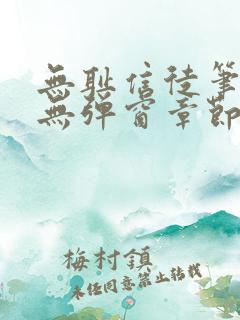 無耻信徒筆
無彈窗章節
梅村鎮
未經同意禁止轉載